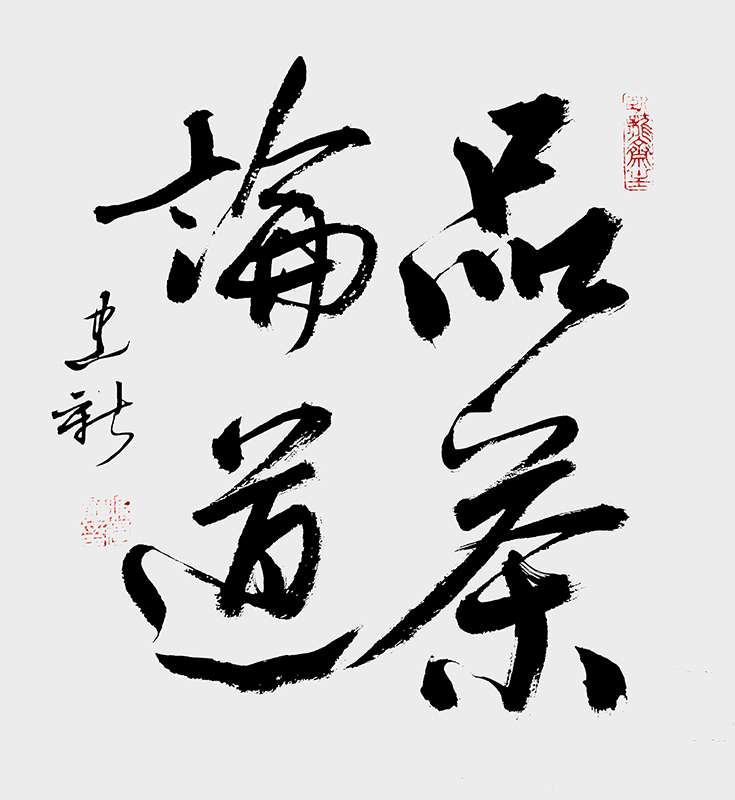 品茶
論道
建新